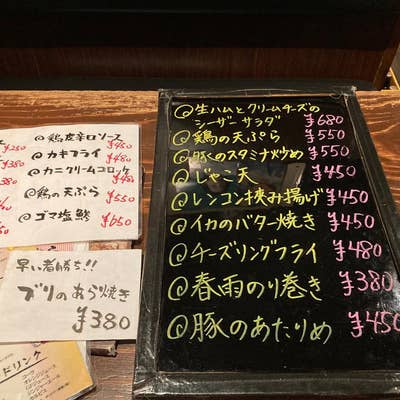 @鶏皮辛口ソース ¥450
@カキフライ ¥480
@カニクリームコロッケ ¥480
@鶏の天ぷら ¥550
@ゴマ塩鯵 ¥650
早い者勝ち!!
ブリのあら焼き
¥380
ドリンク
@生ハムとクリームチーズの
シーザーサラダ ¥680
@鶏の天ぷら ¥550
@豚のスタミナ炒め ¥550
@じゃこ天 ¥450
@レンコン挟み揚げ ¥450
@イカのバター焼き ¥450
@チーズリングフライ ¥480
@春雨のり巻き ¥380
@豚のあたりめ ¥450